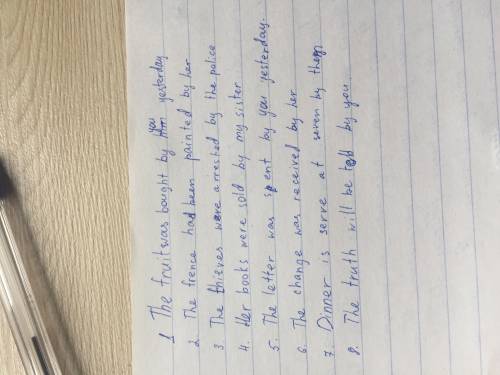 1 The fruit was bought by you yesterday
2. The frence had been painted by her
3 The thieves were arreshed by the police
4. Her books were sold by my sister
5. The letter was spent by you yesterday.
6. The change was received by her
7. Dinner is serve at seven by them
8. The truth will be told by you.